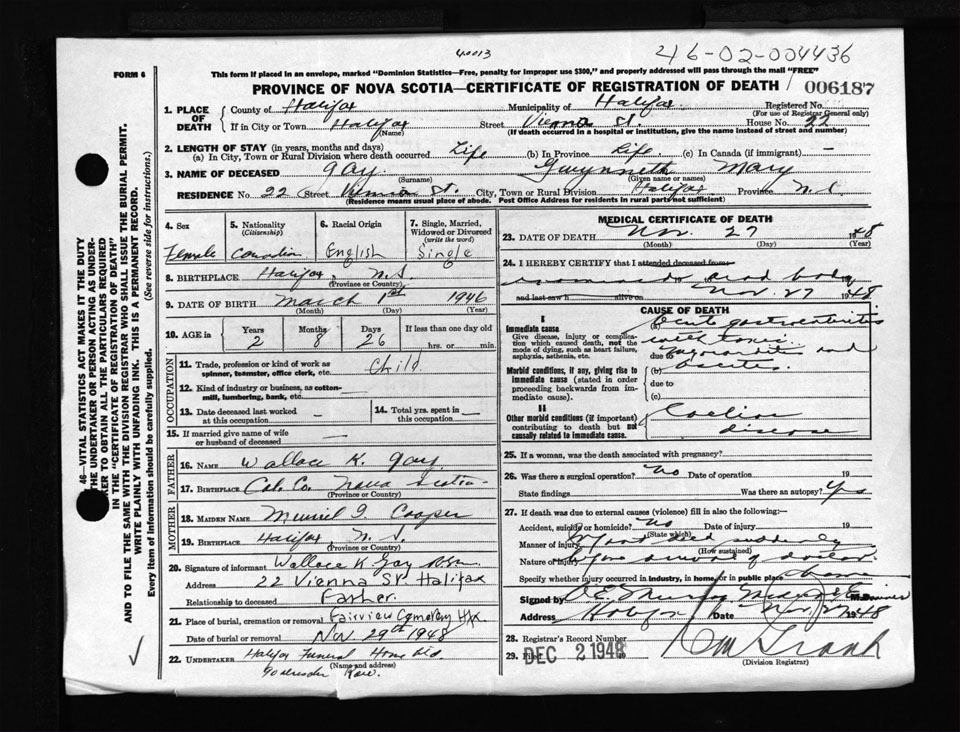 40013
46-02-004436
FORM 6
This form if placed in an envelope, marked "Dominion Statistics—Free, penalty for improper use $300," and properly addressed will pass through the mail "FREE"
PROVINCE OF NOVA SCOTIA—CERTIFICATE OF REGISTRATION OF DEATH
006187
1. PLACE OF DEATH County of Halifax Municipality of Halifax Registered No.
(For use of Registrar General only)
If in City or Town Halifax Street Vienna St. House No. 22
(Name) (If death occurred in a hospital or institution, give the name instead of street and number)
2. LENGTH OF STAY (in years, months and days)
(a) In City, Town or Rural Division where death occurred Life (b) In Province Life. (c) In Canada (if immigrant) —
3. NAME OF DECEASED Gay Gwynneth Mary
(Surname) (Given name or names)
RESIDENCE No. 22 Street Vienna St. City, Town or Rural Division Halifax Province N.S.
(Residence means usual place of abode. Post Office Address for residents in rural parts not sufficient)
4. Sex
Female
5. Nationality (Citizenship)
Canadian
6. Racial Origin
English
7. Single, Married, Widowed or Divorced (write the word)
Single
8. BIRTHPLACE Halifax, N.S.
(Province or Country)
9. DATE OF BIRTH March 1st 1946
(Month) (Day) (Year)
10. AGE in Years Months Days If less than one day old
2 8 26 hrs. or min.
OCCUPATION
11. Trade, profession or kind of work as spinner, teamster, office clerk, etc. Child
12. Kind of industry or business, as cotton-mill, lumbering, bank, etc. —
13. Date deceased last worked at this occupation —
14. Total yrs. spent in this occupation —
15. If married give name of wife or husband of deceased —
FATHER
16. NAME Wallace K. Gay
17. BIRTHPLACE Col. Co. Nova Scotia
(Province or Country)
MOTHER
18. MAIDEN NAME Cooper
19. BIRTHPLACE Halifax, N.S.
(Province or Country)
20. Signature of informant Wallace K Gay
Address 22 Vienna St Halifax
Relationship to deceased Father.
21. Place of burial, cremation or removal Fairview Cemetery Hfx
Date of burial or removal Nov. 29th 1948
22. UNDERTAKER Halifax Funeral Home Ltd.
(Name and address)
MEDICAL CERTIFICATE OF DEATH
23. DATE OF DEATH Nov. 27 1948
(Month) (Day) (Year)
24. I HEREBY CERTIFY that I attended deceased from
dead body
and last saw h alive on Nov. 27 1948
CAUSE OF DEATH
I
Immediate cause
Give disease, injury or complication which caused death, not the mode of dying, such as heart failure, asphyxia, asthenia, etc.
(a) Acute gastroenteritis
with toxic
due to myocarditis and
Morbid conditions, if any, giving rise to immediate cause (stated in order proceeding backwards from immediate cause).
(b) ascites.
due to
(c)
II
Other morbid conditions (if important) contributing to death but not causally related to immediate cause.
Coeliac
disease
25. If a woman, was the death associated with pregnancy?
26. Was there a surgical operation? No Date of operation 19
State findings Was there an autopsy? Yes
27. If death was due to external causes (violence) fill in also the following:—
Accident, suicide or homicide? No Date of injury 19
(State which)
Manner of injury died suddenly
(How sustained)
Nature of injury before arrival of doctor.
Specify whether injury occurred in industry, in home, or in public place home
Signed by Medical Examiner
Address Halifax Date Nov. 27 1948
28. Registrar's Record Number
29. Filed DEC 2 1948
(Division Registrar)
46—VITAL STATISTICS ACT MAKES IT THE DUTY
THE UNDERTAKER OR PERSON ACTING AS UNDER-
KER TO OBTAIN ALL THE PARTICULARS REQUIRED
IN THE "CERTIFICATE OF REGISTRATION OF DEATH"
AND TO FILE THE SAME WITH THE DIVISION REGISTRAR WHO SHALL ISSUE THE BURIAL PERMIT.
WRITE PLAINLY WITH UNFADING INK. THIS IS A PERMANENT RECORD.
Every item of information should be carefully supplied. (See reverse side for instructions.)